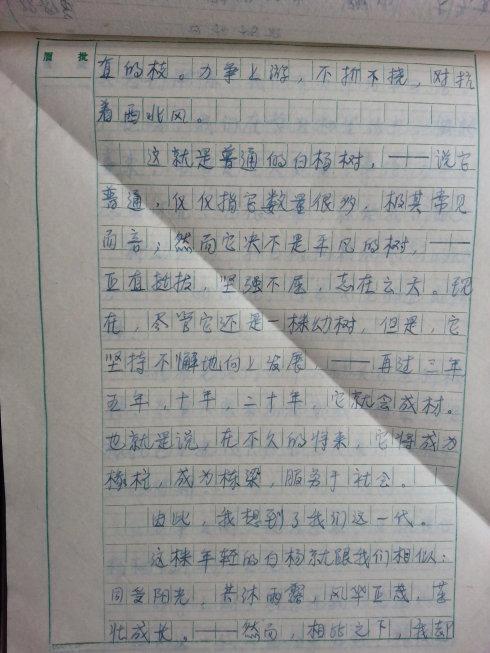 眉 批
直的枝。力争上游，不折不挠，对抗
着西北风。
这就是普通的白杨树，——说它
普通，仅仅指它数量很多，极其常见
而言；然而它决不是平凡的树，——
正直挺拔，坚强不屈，志在云天。现
在，尽管它还是一株幼树，但是，它
坚持不懈地向上发展，——再过三年
五年，十年，二十年，它就会成材。
也就是说，在不久的将来，它将成为
椽柱，成为栋梁，服务于社会。
由此，我想到了我们这一代。
这株年轻的白杨就跟我们相似：
同受阳光，共沐雨露，风华正茂，茁
壮成长。——然而，相比之下，我却